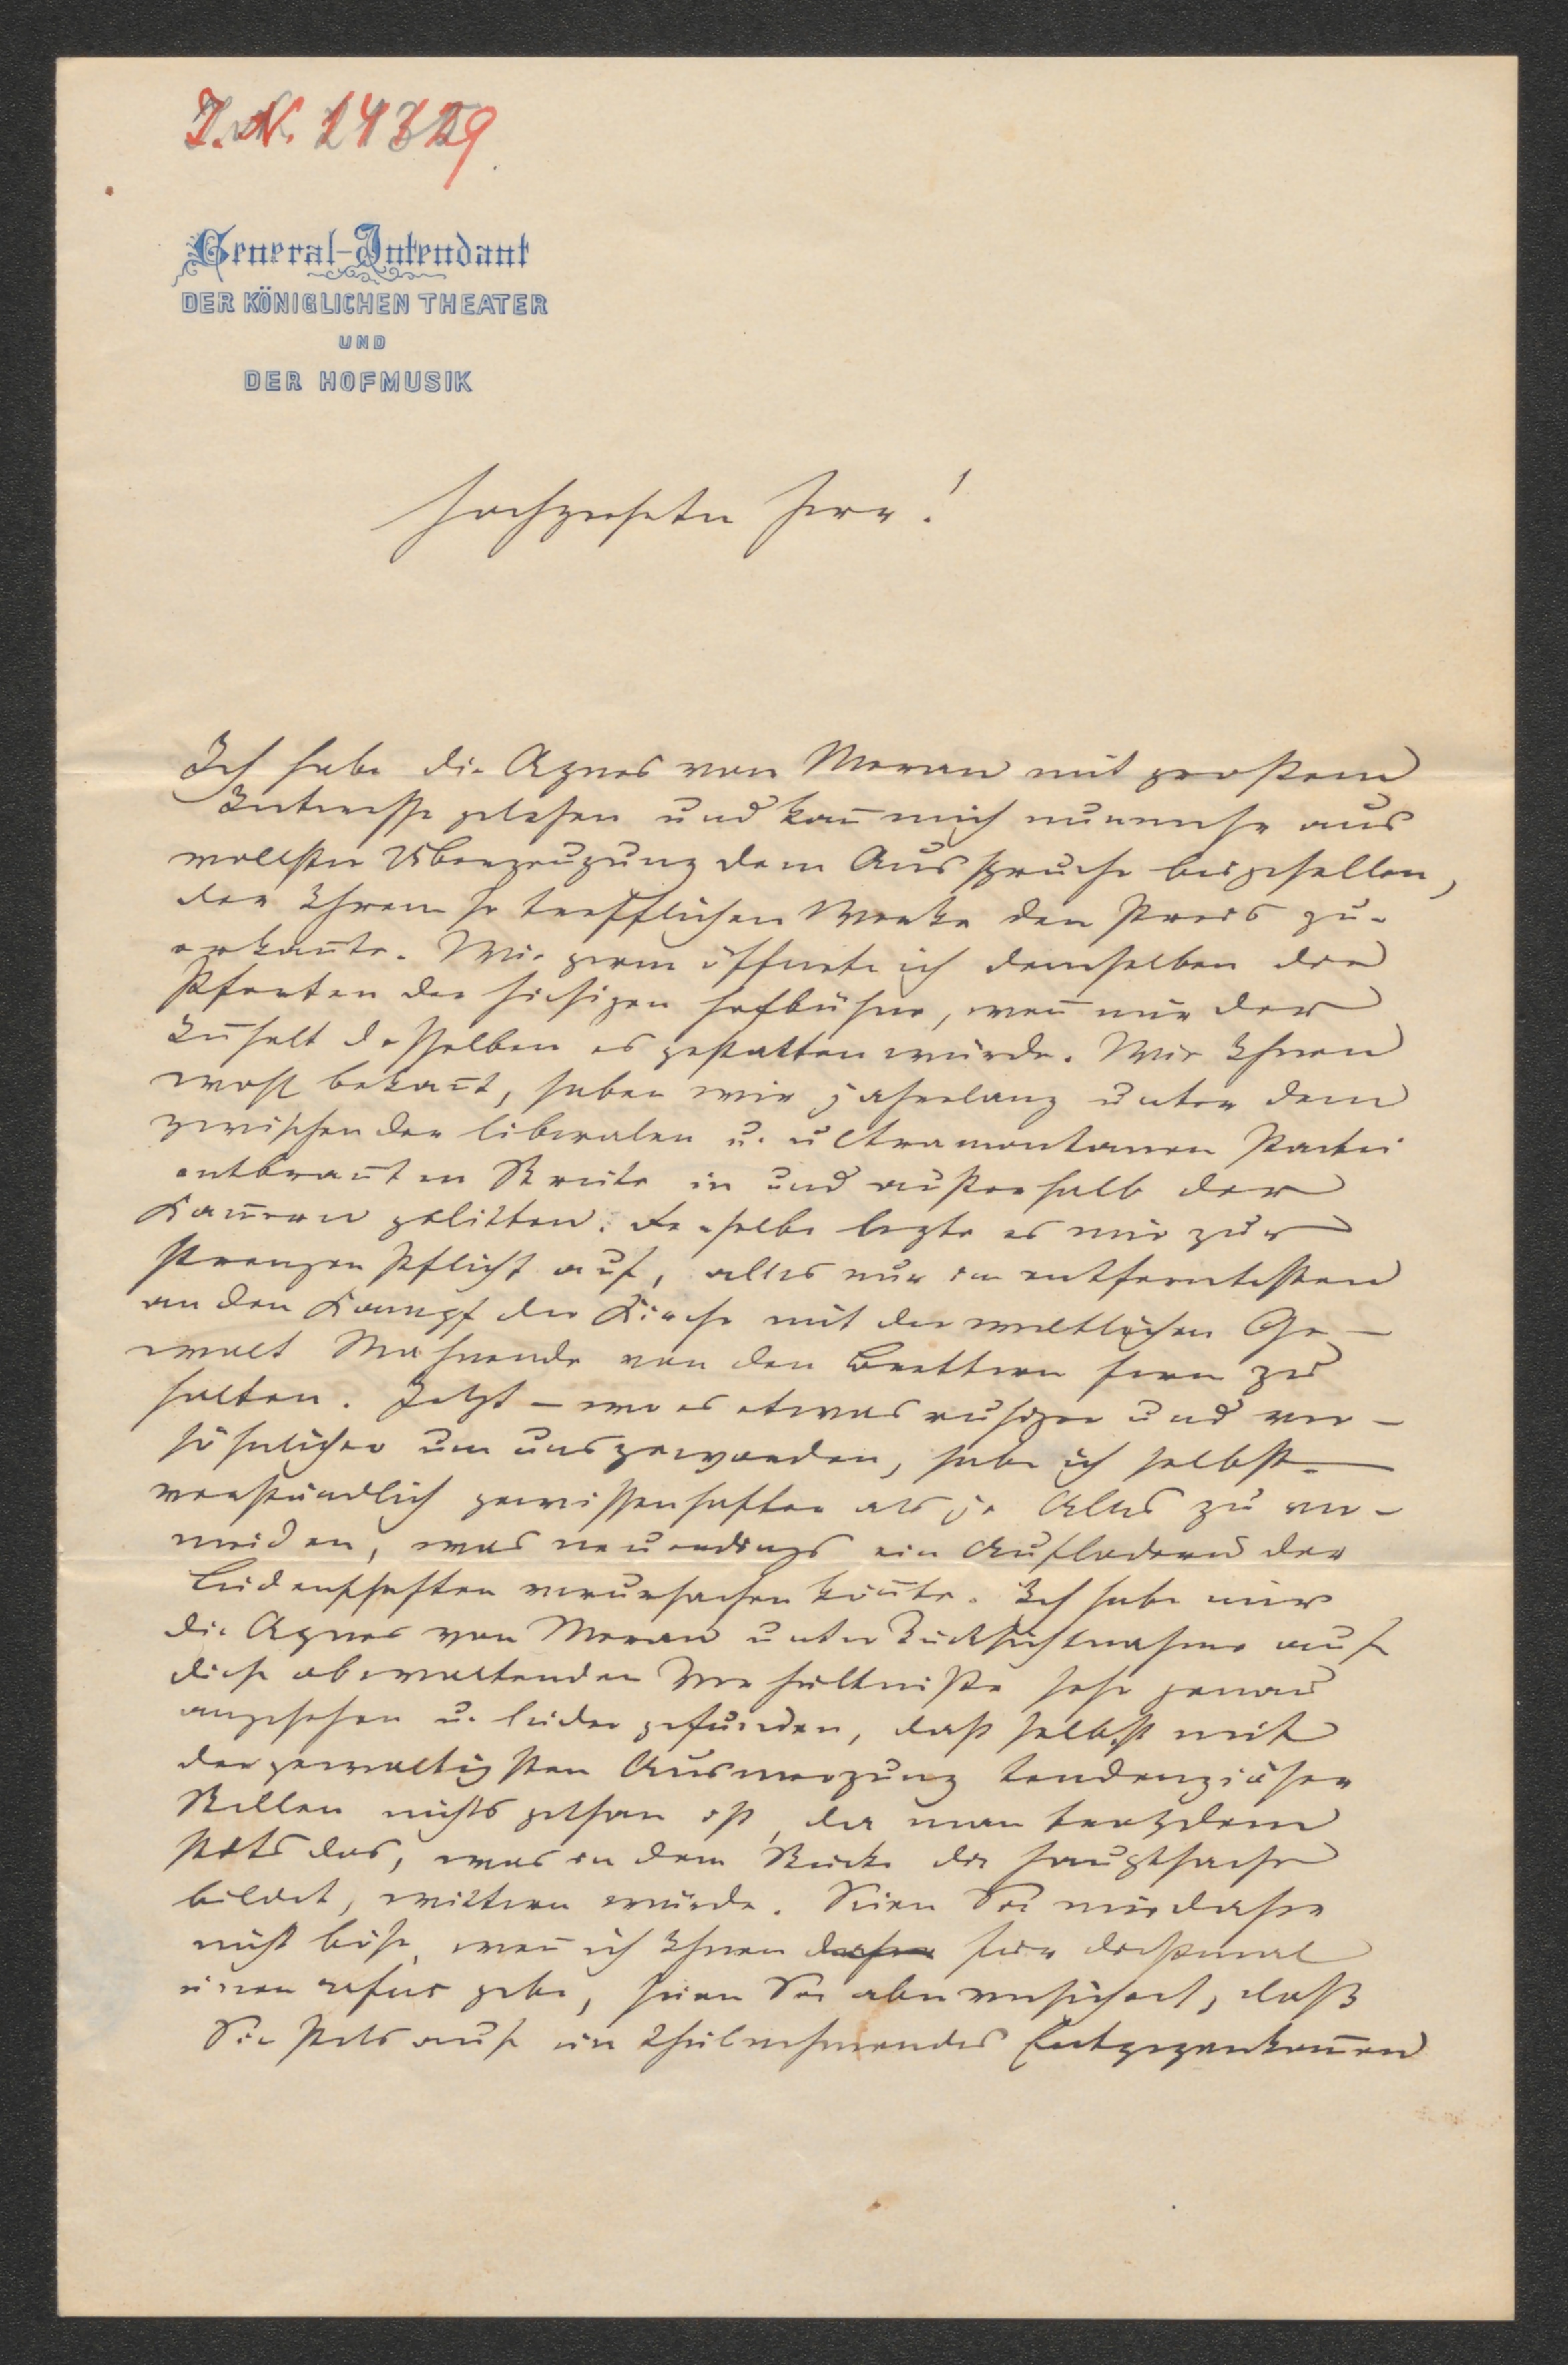 I.N. 24329
General-Intendant
DER KÖNIGLICHEN THEATER
UND
DER HOFMUSIK
Hochgeehrter Herr!
Ich habe die Agnes von Meran mit großem
Interesse gelesen und kan̄ mich nunmehr aus
vollster Überzeugung dem Ausspruche beigesellen,
der Ihrem so trefflichen Werke den Preis zu-
erkan̄te. Wie gerne öffnete ich demselben die
Pforten der hiesigen Hofbühne, wen̄ nur der
In̄halt desselben es gestatten würde. Wie Ihnen
wohl bekan̄t, haben wir jahrelang unter dem
zwischen der liberalen u. ultramontanen Partei
entbran̄ten Streite in und außerhalb der
Kam̄ern gelitten. Derselbe legte es mir zur
strengen Pflicht auf, alles nur im entferntesten
an den Kampf der Kirche mit der weltlichen Ge-
walt Mahnende von den Brettern fern zu
halten. Jetzt – wo es etwas ruhiger und ver-
söhnlicher um uns geworden, habe ich selbst-
verständlich gewissenhafter als je Alles zu ver-
meiden, was neuerdings ein Auflodern der
Leidenschaften verursachen kön̄te. Ich habe mir
die Agnes von Meran unter Rücksichtnahme auf
diese obwaltenden Verhältniße sehr genau
angesehen u. leider gefunden, daß selbst mit
der gewaltigsten Ausmerzung tendenziöser
Stellen nichts gethan ist, da man trotzdem
stets das, was in dem Stücke die Hauptsache
bildet, wittern würde. Seien Sie mir daher
nicht böse, wen̄ ich Ihnen daher für dießmal
einen refus gebe, seien Sie aber versichert, daß
Sie stets auf ein theilnehmendes Entgegenkom̄en